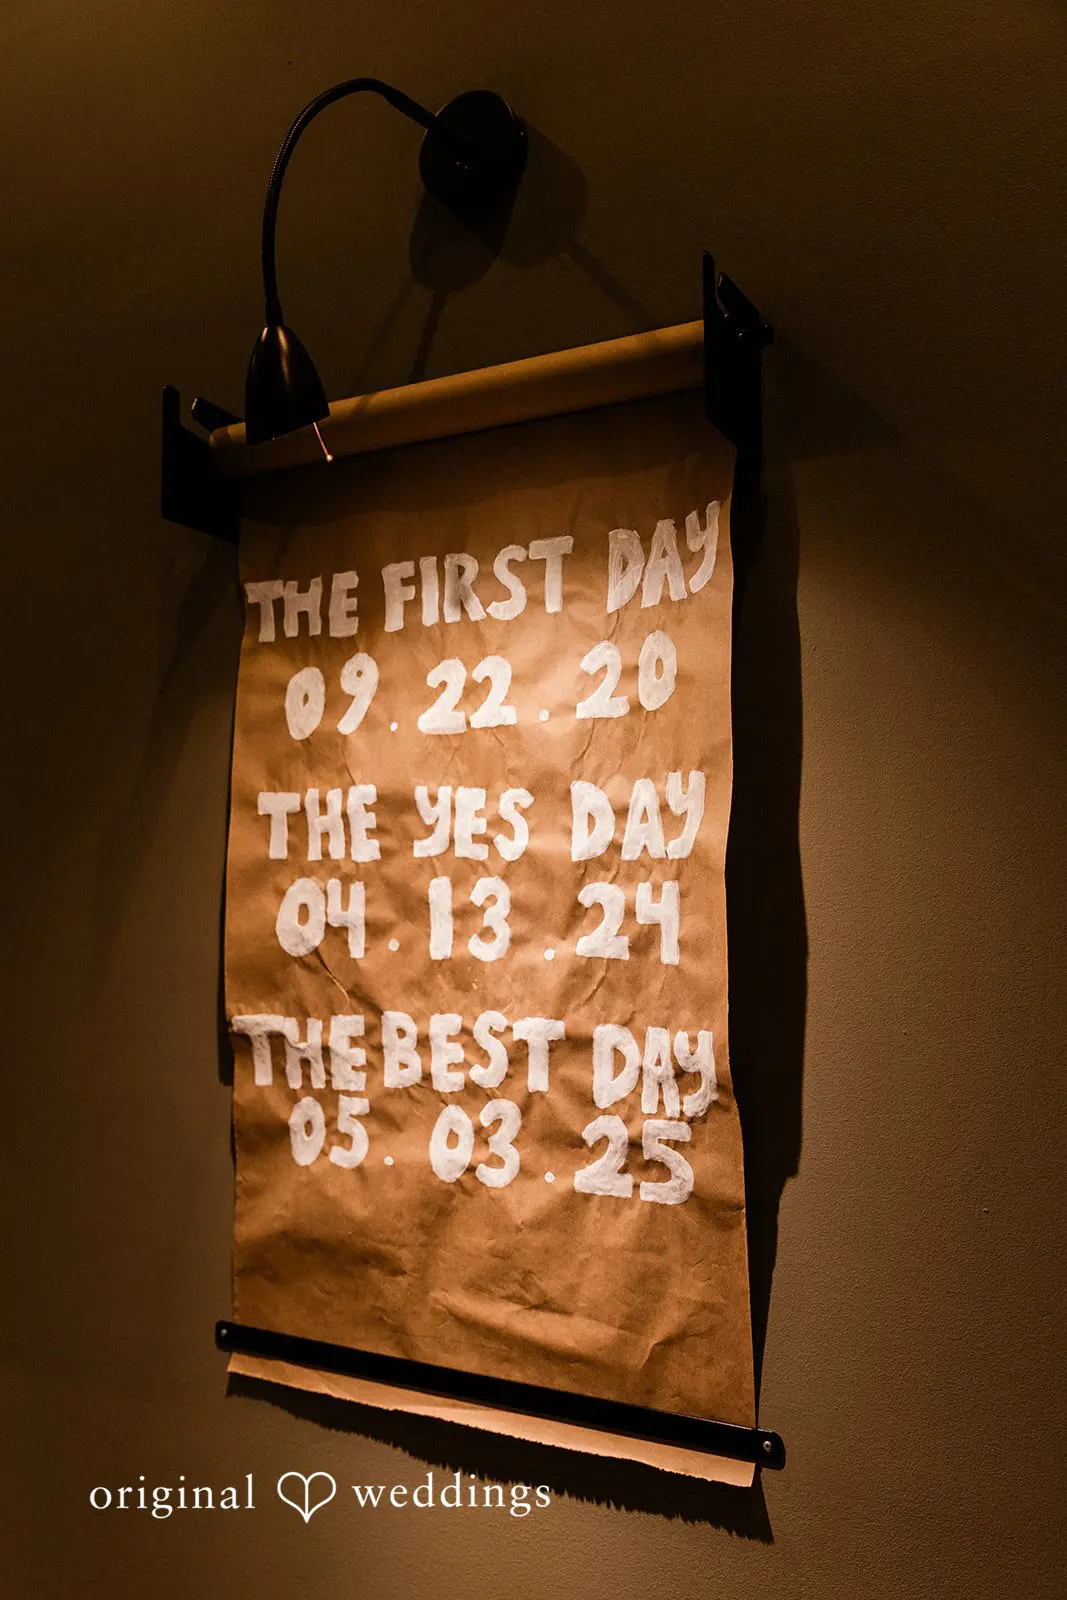 THE FIRST DAY
09.22.20
THE YES DAY
04.13.24
THE BEST DAY
05.03.25
original weddings